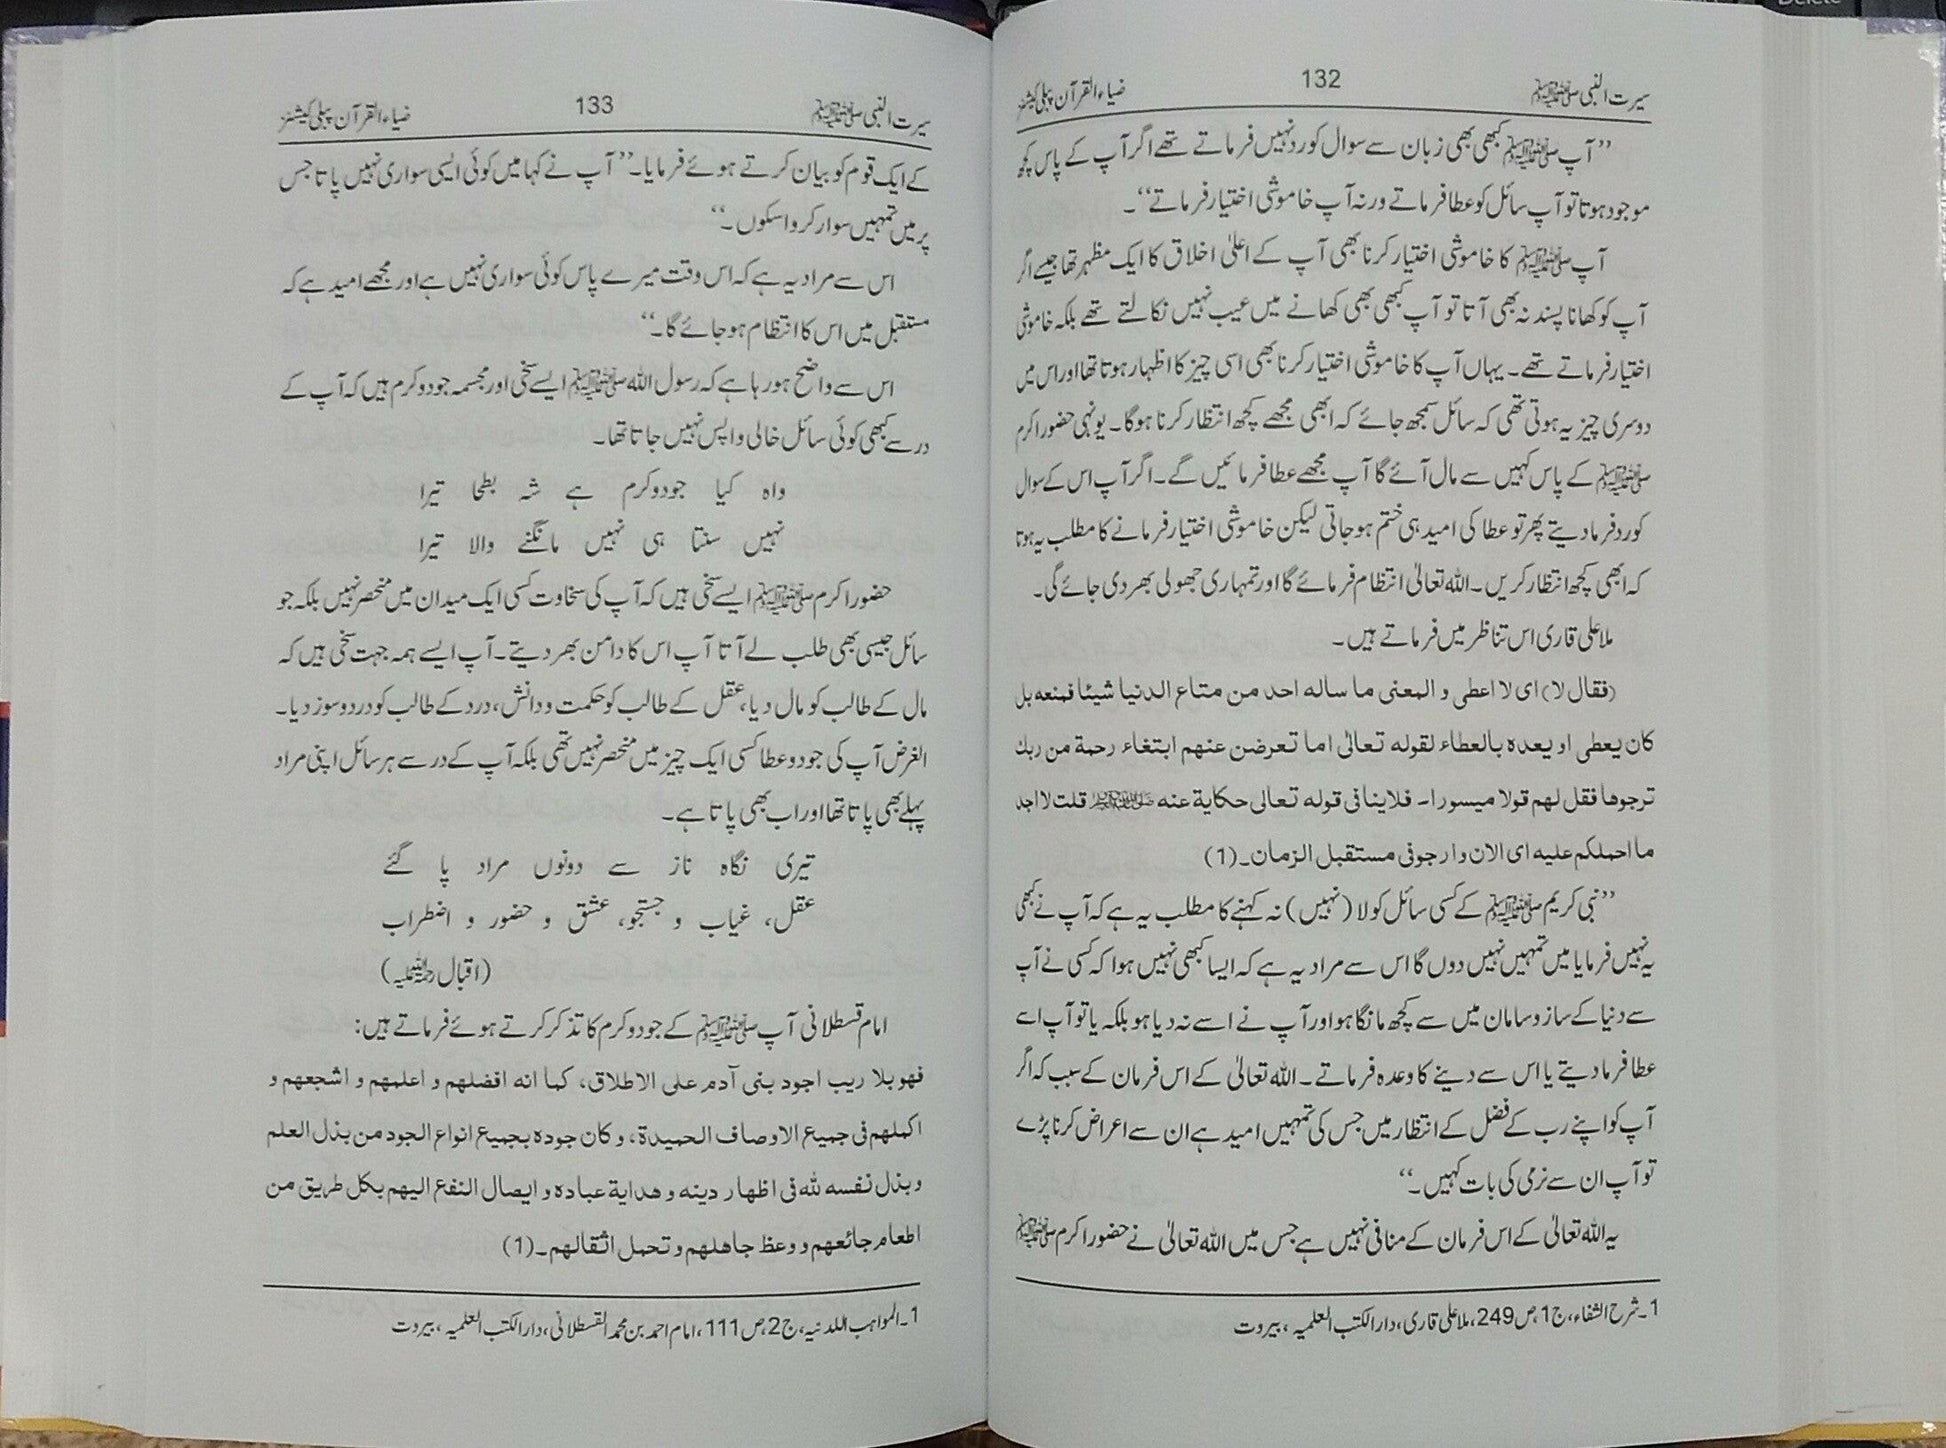 سیرت النبی ﷺ 132 ضیاء القرآن پبلی کیشنز
’’آپ ﷺ کبھی بھی زبان سے سوال کو رد نہیں فرماتے تھے اگر آپ کے پاس کچھ
موجود ہوتا تو آپ سائل کو عطا فرماتے ورنہ آپ خاموشی اختیار فرماتے‘‘۔
آپ ﷺ کا خاموشی اختیار کرنا بھی آپ کے اعلیٰ اخلاق کا ایک مظہر تھا جیسے اگر
آپ کو کھانا پسند نہ بھی آتا تو آپ کبھی بھی کھانے میں عیب نہیں نکالتے تھے بلکہ خاموشی
اختیار فرماتے تھے۔ یہاں آپ کا خاموشی اختیار کرنا بھی اسی چیز کا اظہار ہوتا تھا اور اس میں
دوسری چیز یہ ہوتی تھی کہ سائل سمجھ جائے کہ ابھی مجھے کچھ انتظار کرنا ہوگا۔ یونہی حضور اکرم
ﷺ کے پاس کہیں سے مال آئے گا آپ مجھے عطا فرمائیں گے۔ اگر آپ اس کے سوال
کو رد فرما دیتے پھر تو عطا کی امید ہی ختم ہو جاتی لیکن خاموشی اختیار فرمانے کا مطلب یہ ہوتا
کہ ابھی کچھ انتظار کریں۔ اللہ تعالیٰ انتظام فرمائے گا اور تمہاری جھولی بھر دی جائے گی۔
ملا علی قاری اس تناظر میں فرماتے ہیں۔
(فقال لا) ای لا اعطی و المعنی ما سالہ احد من متاع الدنیا شیئا فمنعہ بل
کان یعطی او یعدہ بالعطاء لقولہ تعالیٰ اما تعرضن عنھم ابتغاء رحمة من ربك
ترجوھا فقل لھم قولا میسورا۔ فلاینافی قولہ تعالی حکایة عنہ ﷺ قلت لا اجد
ما احملکم علیہ ای الان وارجو فی مستقبل الزمان۔(1)
’’نبی کریم ﷺ کے کسی سائل کو لا (نہیں) نہ کہنے کا مطلب یہ ہے کہ آپ نے کبھی
یہ نہیں فرمایا میں تمہیں نہیں دوں گا اس سے مراد یہ ہے کہ ایسا کبھی نہیں ہوا کہ کسی نے آپ
سے دنیا کے ساز و سامان میں سے کچھ مانگا ہو اور آپ نے اسے نہ دیا ہو بلکہ یا تو آپ اسے
عطا فرما دیتے یا اس سے دینے کا وعدہ فرماتے۔ اللہ تعالیٰ کے اس فرمان کے سبب کہ اگر
آپ کو اپنے رب کے فضل کے انتظار میں جس کی تمہیں امید ہے ان سے اعراض کرنا پڑے
تو آپ ان سے نرمی کی بات کہیں۔‘‘
یہ اللہ تعالیٰ کے اس فرمان کے منافی نہیں ہے جس میں اللہ تعالیٰ نے حضور اکرم ﷺ
1۔ شرح الشفاء، ج1، ص249، ملا علی قاری، دارالکتب العلمیہ، بیروت
سیرت النبی ﷺ 133 ضیاء القرآن پبلی کیشنز
کے ایک قوم کو بیان کرتے ہوئے فرمایا۔’’آپ نے کہا میں کوئی ایسی سواری نہیں پاتا جس
پر میں تمہیں سوار کروا سکوں۔‘‘
اس سے مراد یہ ہے کہ اس وقت میرے پاس کوئی سواری نہیں ہے اور مجھے امید ہے کہ
مستقبل میں اس کا انتظام ہو جائے گا۔‘‘
اس سے واضح ہو رہا ہے کہ رسول اللہ ﷺ ایسے سخی اور مجسمہ جود و کرم ہیں کہ آپ کے
در سے کبھی کوئی سائل خالی واپس نہیں جاتا تھا۔
واہ کیا جود و کرم ہے شہ بطحا تیرا
نہیں سنتا ہی نہیں مانگنے والا تیرا
حضور اکرم ﷺ ایسے سخی ہیں کہ آپ کی سخاوت کسی ایک میدان میں منحصر نہیں بلکہ جو
سائل جیسی بھی طلب لے آتا آپ اس کا دامن بھر دیتے۔ آپ ایسے ہمہ جہت سخی ہیں کہ
مال کے طالب کو مال دیا، عقل کے طالب کو حکمت و دانش، درد کے طالب کو درد و سوز دیا۔
الغرض آپ کی جود و عطا کسی ایک چیز میں منحصر نہیں تھی بلکہ آپ کے در سے ہر سائل اپنی مراد
پہلے بھی پاتا تھا اور اب بھی پاتا ہے۔
تیری نگاہ ناز سے دونوں مراد پا گئے
عقل، غیاب و جستجو، عشق و حضور و اضطراب
(اقبال رحمۃ اللہ علیہ)
امام قسطلانی آپ ﷺ کے جود و کرم کا تذکر کرتے ہوئے فرماتے ہیں:
فھو بلا ریب اجود بنی آدم علی الاطلاق، کما انہ افضلھم و اعلمھم و اشجعھم و
اکملھم فی جمیع الاوصاف الحمیدة، و کان جودہ بجمیع انواع الجود من بذل العلم
و بذل نفسہ للہ فی اظھار دینہ و ھدایة عبادہ و ایصال النفع الیھم بکل طریق من
اطعام جائعھم و وعظ جاھلھم و تحمل اثقالھم۔(1)
1۔ المواہب اللدنیہ، ج2، ص111، امام احمد بن محمد القسطلانی، دارالکتب العلمیہ، بیروت
Delete